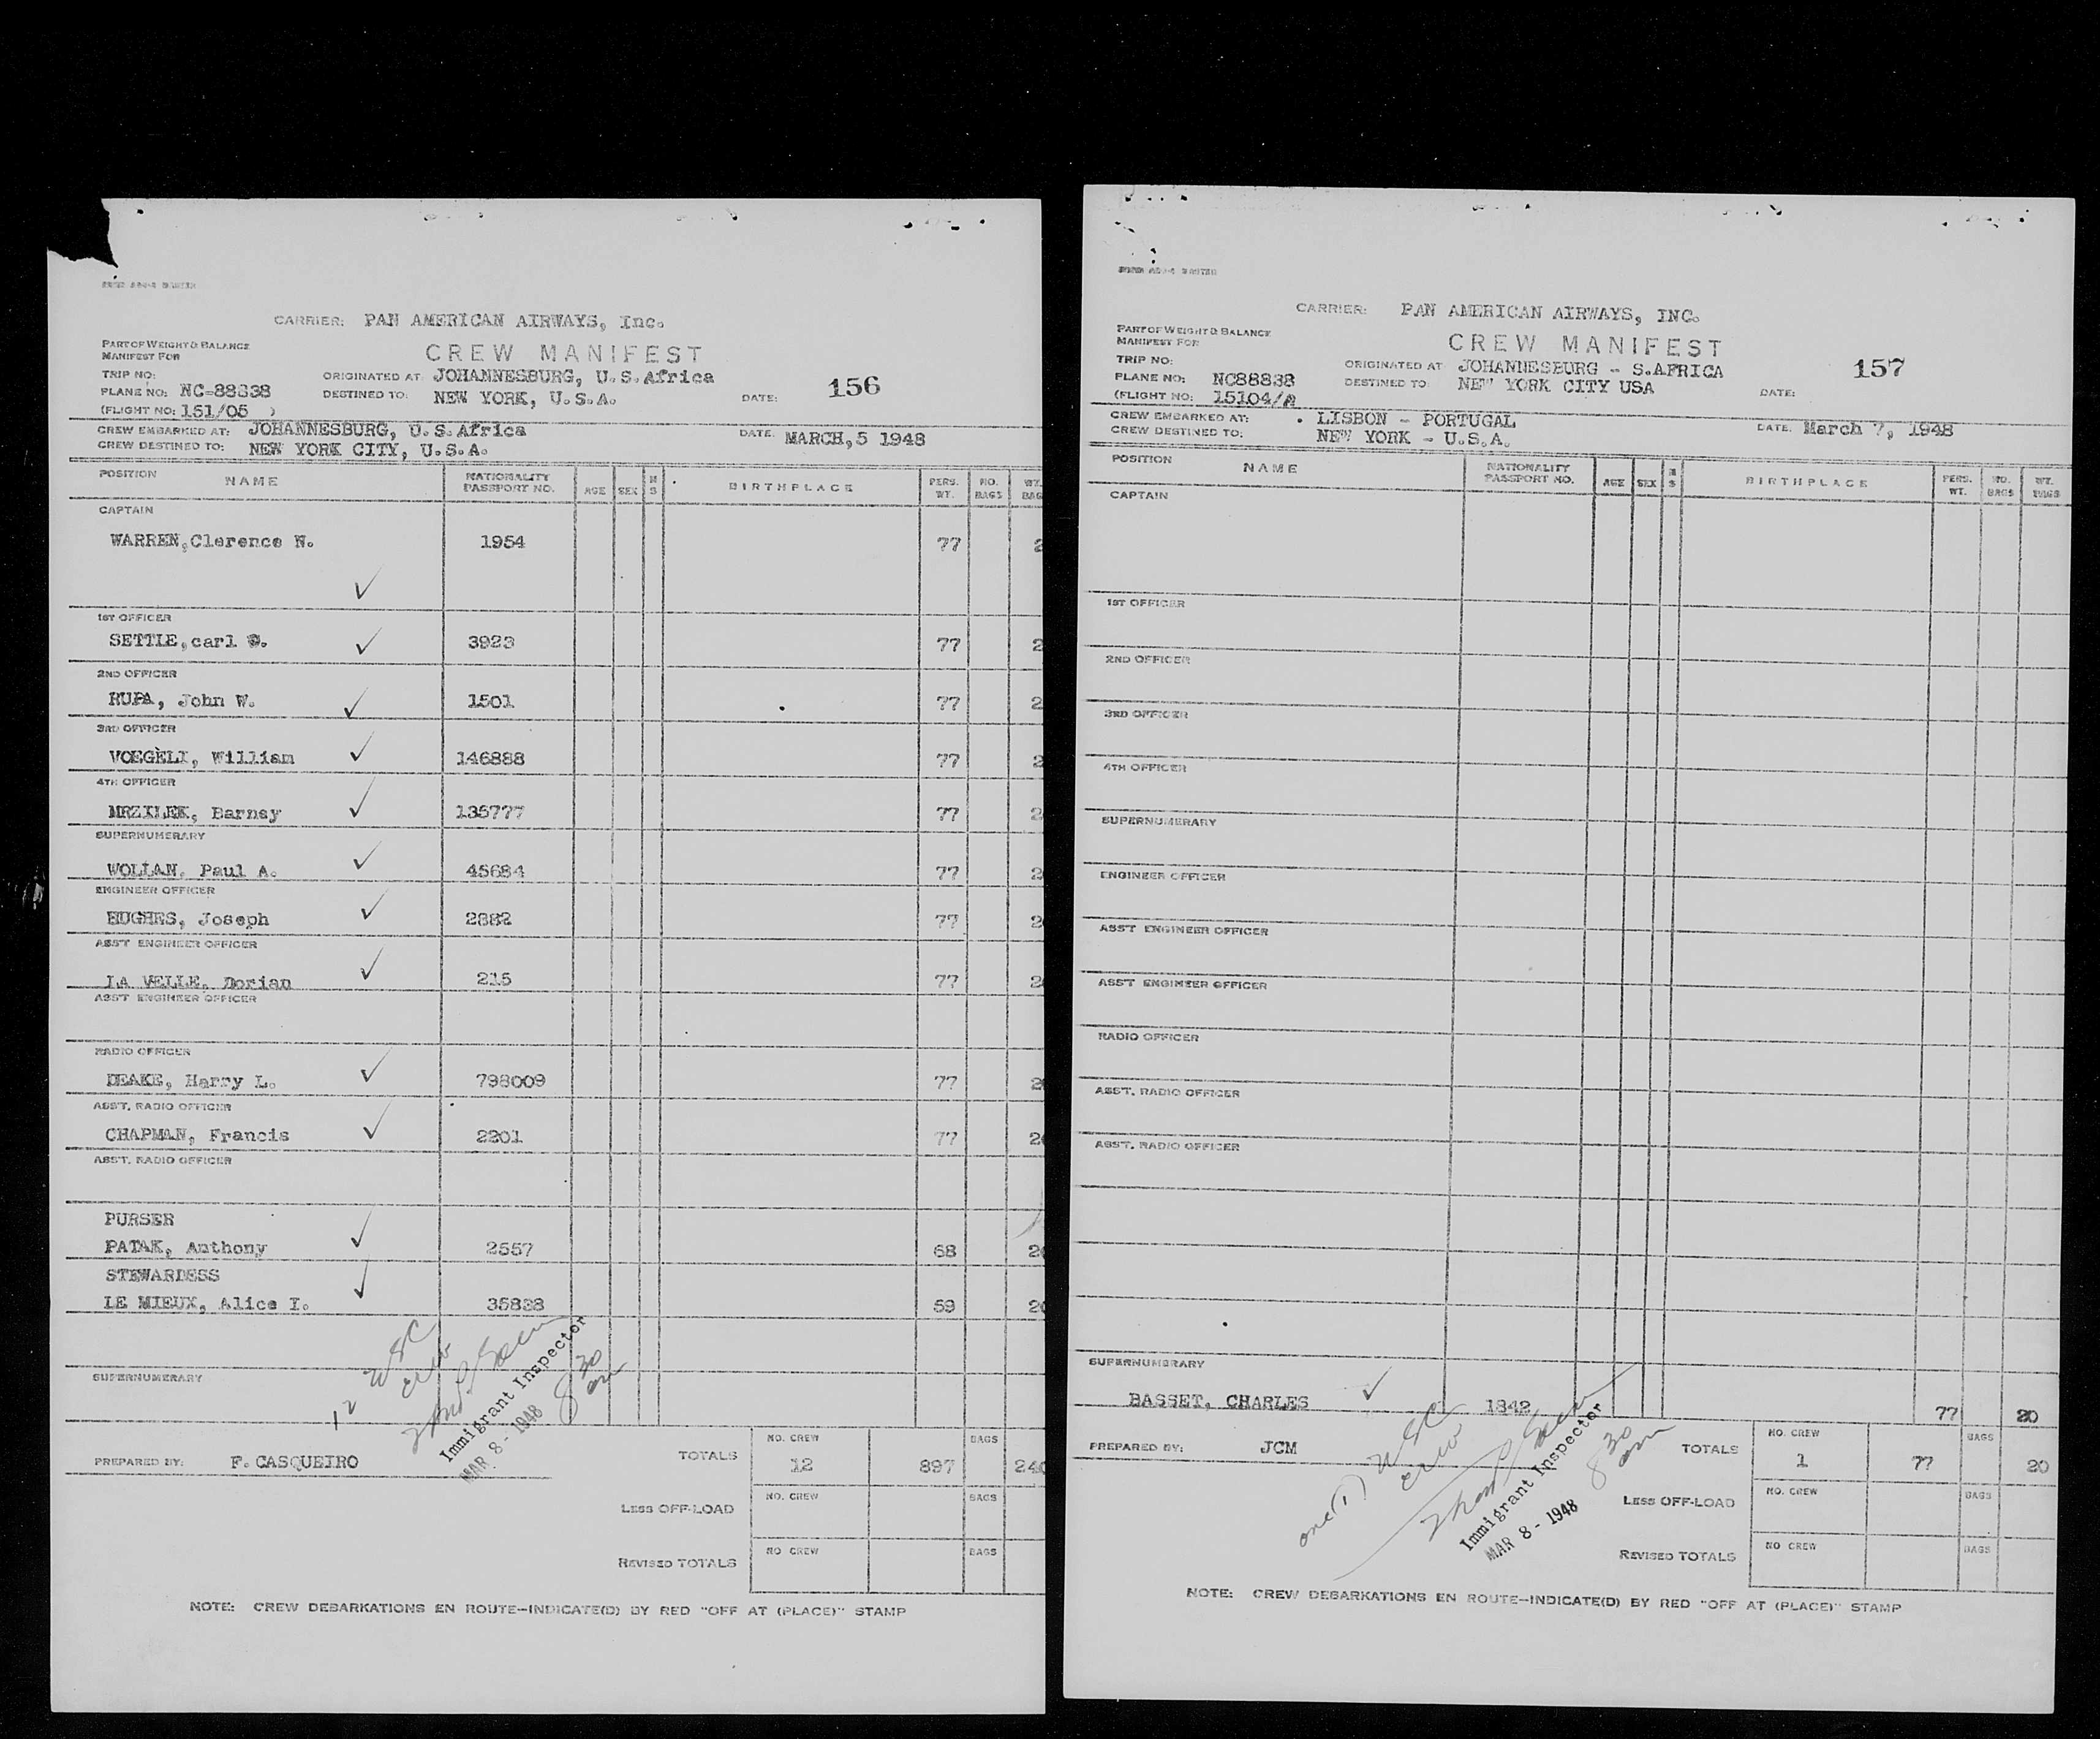 CARRIER: PAN AMERICAN AIRWAYS, Inc.
PART OF WEIGHT & BALANCE
MANIFEST FOR
CREW MANIFEST
TRIP NO:
ORIGINATED AT: JOHANNESBURG, U.S.Africa
156
PLANE NO: NC-88838
DESTINED TO: NEW YORK, U.S.A.
DATE:
(FLIGHT NO: 151/05 )
CREW EMBARKED AT: JOHANNESBURG, U.S.Africa
DATE: MARCH,5 1948
CREW DESTINED TO: NEW YORK CITY, U.S.A.
POSITION NAME NATIONALITY PASSPORT NO. AGE SEX M S BIRTHPLACE PERS. WT. NO. BAGS WT. BAG
CAPTAIN
WARREN,Clerence N. 1954 77 2
1ST OFFICER
SETTLE,carl 3923 77 2
2ND OFFICER
RUPA, John W. 1501 77 2
3RD OFFICER
VOEGELI, William 146888 77 2
4TH OFFICER
MRZILEK, Barney 135777 77 2
SUPERNUMERARY
WOLLAN, Paul A. 45684 77 2
ENGINEER OFFICER
HUGHES, Joseph 2882 77 2
ASS'T ENGINEER OFFICER
LA VELLE, Dorian 215 77 2
ASS'T ENGINEER OFFICER
RADIO OFFICER
DEAKE, Harry L. 798009 77 2
ASS'T. RADIO OFFICER
CHAPMAN, Francis 2201 77 20
ASS'T. RADIO OFFICER
PURSER
PATAK, Anthony 2557 68 20
STEWARDESS
LE MIEUX, Alice I. 35828 59 20
SUPERNUMERARY
12 USC
crew
Immigrant Inspector
MAR 8 - 1948
8 30
am
PREPARED BY: F. CASQUEIRO
TOTALS NO. CREW 12 897 BAGS 240
LESS OFF-LOAD NO. CREW BAGS
REVISED TOTALS NO CREW BAGS
NOTE: CREW DEBARKATIONS EN ROUTE-INDICATE(D) BY RED "OFF AT (PLACE)" STAMP
CARRIER: PAN AMERICAN AIRWAYS, INC.
PART OF WEIGHT & BALANCE
MANIFEST FOR
CREW MANIFEST
TRIP NO:
ORIGINATED AT JOHANNESBURG - S.AFRICA
157
PLANE NO: NC88838
DESTINED TO: NEW YORK CITY USA
DATE:
(FLIGHT NO: 15104/A
CREW EMBARKED AT: LISBON - PORTUGAL
DATE: March 7, 1948
CREW DESTINED TO: NEW YORK - U.S.A.
POSITION NAME NATIONALITY PASSPORT NO. AGE SEX M S BIRTHPLACE PERS. WT. NO. BAGS WT. BAGS
CAPTAIN
1ST OFFICER
2ND OFFICER
3RD OFFICER
4TH OFFICER
SUPERNUMERARY
ENGINEER OFFICER
ASS'T ENGINEER OFFICER
ASS'T ENGINEER OFFICER
RADIO OFFICER
ASS'T. RADIO OFFICER
ASS'T. RADIO OFFICER
SUPERNUMERARY
BASSET, CHARLES 1842 77 20
PREPARED BY: JCM
one (1) USC
crew
Immigrant Inspector
MAR 8 - 1948
8 30
am
TOTALS NO. CREW 1 77 BAGS 20
LESS OFF-LOAD NO. CREW BAGS
REVISED TOTALS NO CREW BAGS
NOTE: CREW DEBARKATIONS EN ROUTE-INDICATE(D) BY RED "OFF AT (PLACE)" STAMP